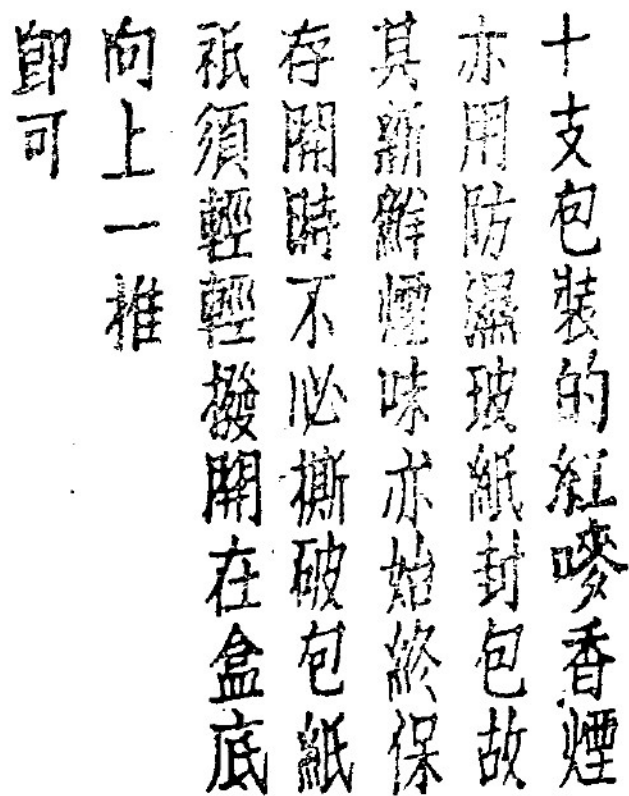 十支包裝的紅嘜香煙
亦用防濕玻紙封包故
其新鮮煙味亦始終保
存開時不必撕破包紙
祇須輕輕撥開在盒底
向上一推
卽可